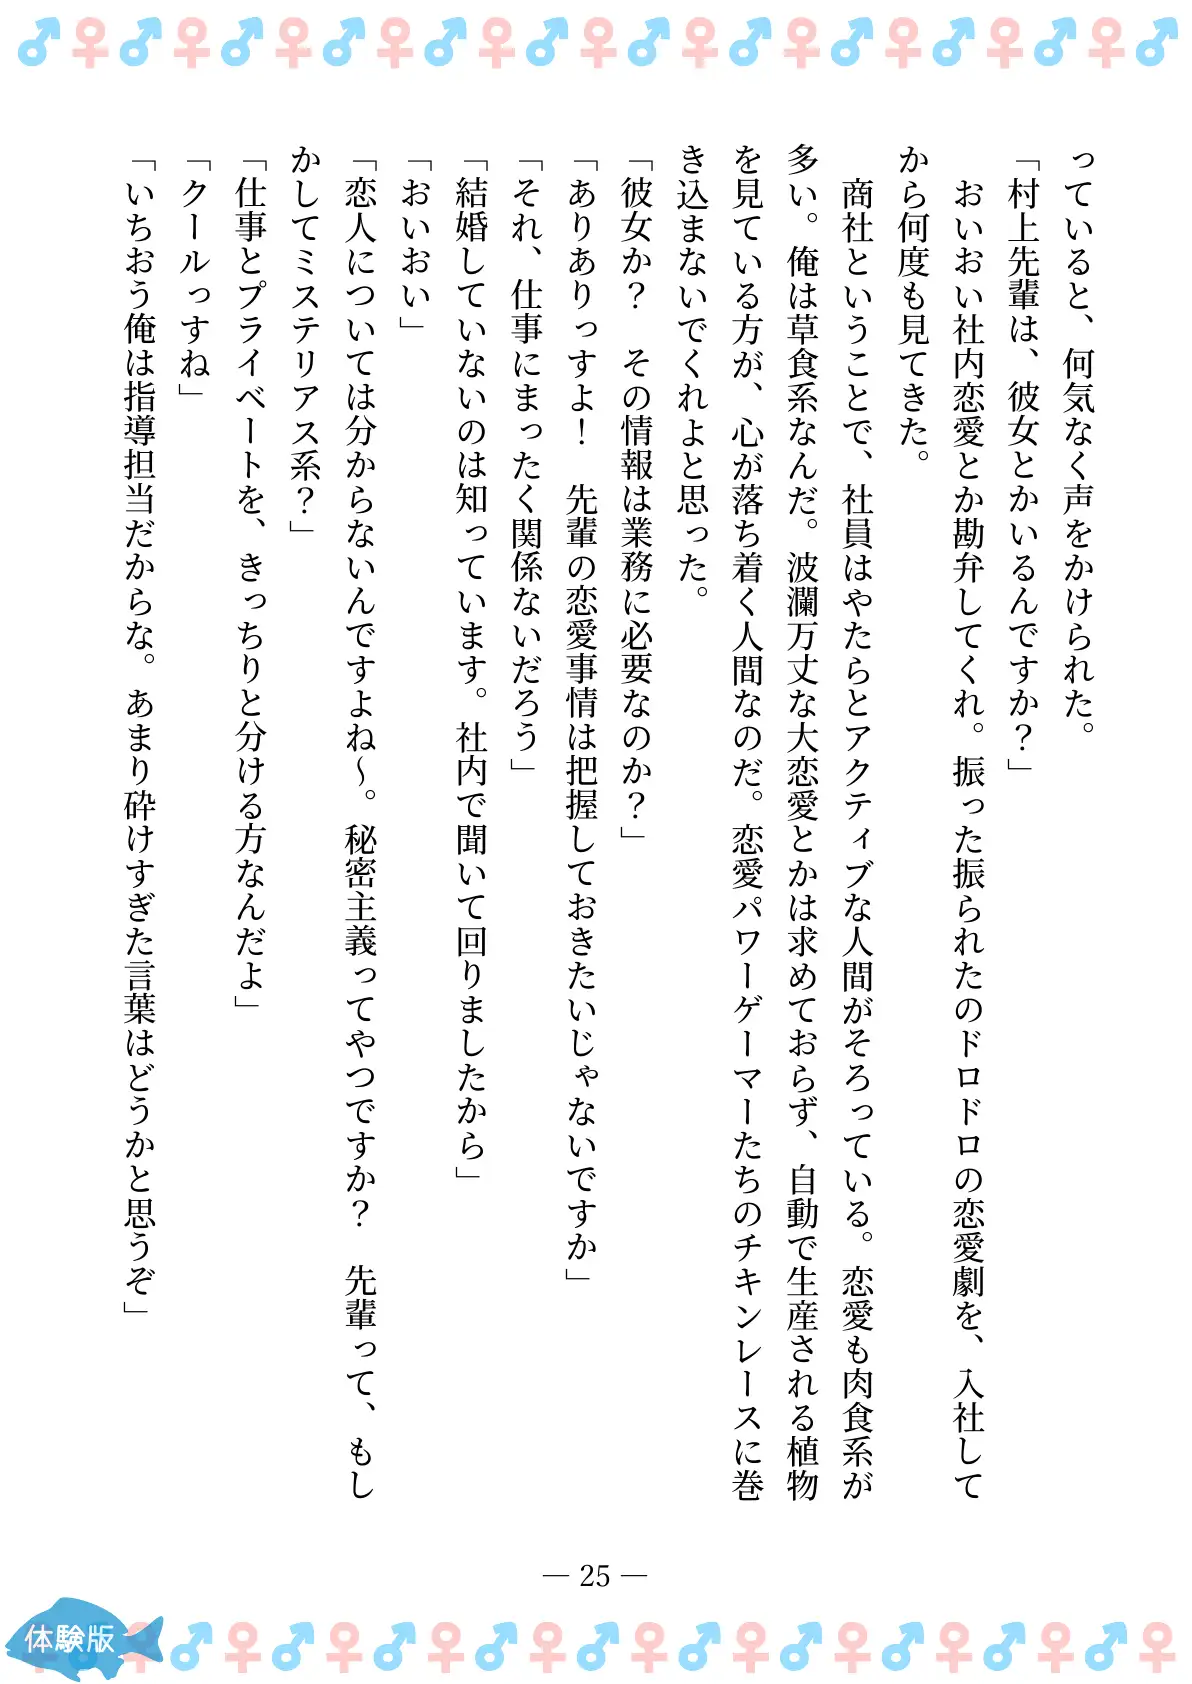 っていると、何気なく声をかけられた。
「村上先輩は、彼女とかいるんですか？」
　おいおい社内恋愛とか勘弁してくれ。振った振られたのドロドロの恋愛劇を、入社して
から何度も見てきた。
　商社ということで、社員はやたらとアクティブな人間がそろっている。恋愛も肉食系が
多い。俺は草食系なんだ。波瀾万丈な大恋愛とかは求めておらず、自動で生産される植物
を見ている方が、心が落ち着く人間なのだ。恋愛パワーゲーマーたちのチキンレースに巻
き込まないでくれよと思った。
「彼女か？　その情報は業務に必要なのか？」
「ありありっすよ！　先輩の恋愛事情は把握しておきたいじゃないですか」
「それ、仕事にまったく関係ないだろう」
「結婚していないのは知っています。社内で聞いて回りましたから」
「おいおい」
「恋人については分からないんですよね～。秘密主義ってやつですか？　先輩って、もし
かしてミステリアス系？」
「仕事とプライベートを、きっちりと分ける方なんだよ」
「クールっすね」
「いちおう俺は指導担当だからな。あまり砕けすぎた言葉はどうかと思うぞ」
— 25 —
体験版